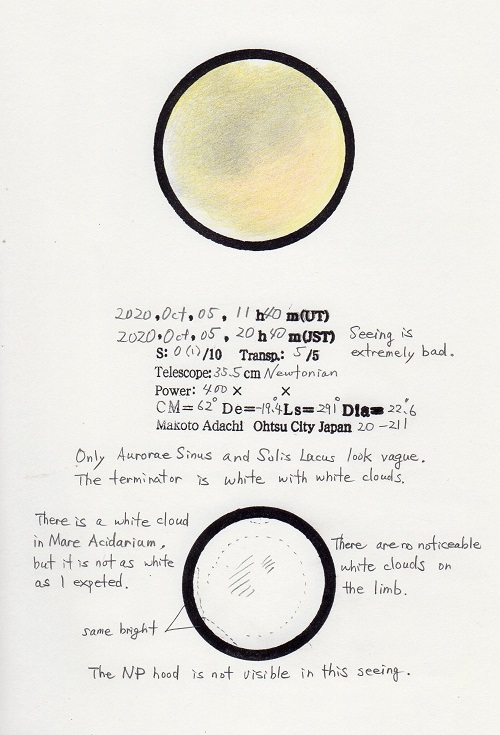 2020, Oct, 05, 11 h 40 m(UT)
2020, Oct, 05, 20 h 40 m(JST)
S: 0(1)/10 Transp.: 5/5
Seeing is
extremely bad.
Telescope: 35.5 cm Newtonian
Power: 400 × ×
CM= 62° De= -19.4 Ls= 291° Dia= 22".6
Makoto Adachi Ohtsu City Japan 20-211
Only Aurorae Sinus and Solis Lacus look vague.
The terminator is white with white clouds.
There is a white cloud
in Mare Acidarium,
but it is not as white
as I expeted.
There are no noticeable
white clouds on
the limb.
same bright
The NP hood is not visible in this seeing.